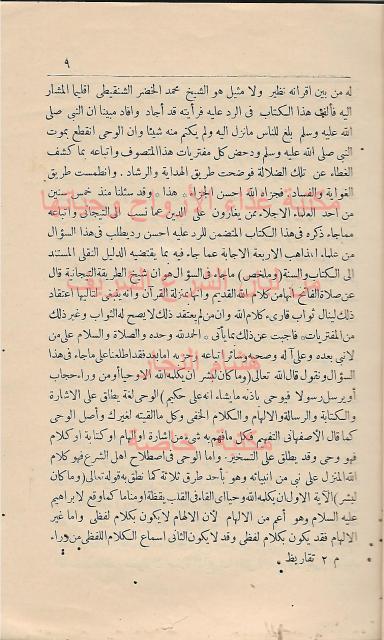 ٩
له من بين اقرانه نظير ولا مثيل هو الشيخ محمد الخضر الشنقيطى اقليما المشار
اليه فألف هذا الكتاب فى الرد عليه فرأيته قد أجاد وافاد مبينا ان النبى صلى
الله عليه وسلم بلغ للناس ما نزل اليه ولم يكتم منه شيئا وان الوحى انقطع بموت
النبى صلى الله عليه وسلم ودحض كل مفتريات هذا المتصوف واتباعه بما كشف
الغطاء عن تلك الضلالة فوضحت طريق الهداية والرشاد . وانطمست طريق
الغواية والفساد . فجزاه الله احسن الجزاء * هذا * وقد سئلنا منذ خمس سنين
من أحد العلماء الاجلاء ممن يغارون على الدين عما نسب الى التيجانى واتباعه
مما جاء ذكره فى هذا الكتاب المتضمن للرد عليه احسن رد يطلب فى هذا السؤال
من علماء المذاهب الاربعة الاجابة عما جاء فيه بما يقتضيه الدليل النقلى المستند
الى الكتاب والسنة (وملخص) ما جاء فى السؤال هو ان شيخ الطريقة التيجانية قال
عن صلاة الفاتح انها من كلام الله القديم وانها بمنزلة القرآن وانه ينبغى لتاليها اعتقاد
ذلك لينال ثواب قارىء كلام الله وان من لم يعتقد ذلك لا يصح له الثواب وغير ذلك
من المفتريات * فأجبت عن ذلك بما يأتى * الحمد لله وحده والصلاة والسلام على من
لا نبى بعده وعلى آله وصحبه وسائر اتباعه وحزبه اما بعد فقد اطلعنا على ما جاء فى هذا
السؤال ونقول قال الله تعالى (وما كان لبشر أن يكلمه الله الا وحيا أو من وراء حجاب
أو يرسل رسولا فيوحى باذنه ما يشاء انه على حكيم) الوحى لغة يطلق على الاشارة
والكتابة والرسالة والالهام والكلام الخفى وكل ما القيته لغيرك وأصل الوحى
كما قال الاصفهانى التفهيم فكل ما فهم به شىء من اشارة او الهام او كتابة او كلام
فهو وحى وقد يطلق على التسخير. واما الوحى فى اصطلاح اهل الشرع فهو كلام
الله المنزل على نبى من انبيائه وهو بأحد طرق ثلاثة كما نطق به قوله تعالى (وما كان
لبشر) الآية الاول ان يكلمه الله وحيا اى القاء فى القلب يقظة او مناما كما وقع لابراهيم
عليه السلام وهو أعم من الالهام لأن الالهام لا يكون بكلام لفظى واما غير
الالهام فقد يكون بكلام لفظى وقد لا يكون الثانى اسماع الكلام اللفظى من وراء.
م ٢ تقاريظ
مكتبة غذاء الأرواح وحياتها
هشام التجاني
مكتبة خاصة